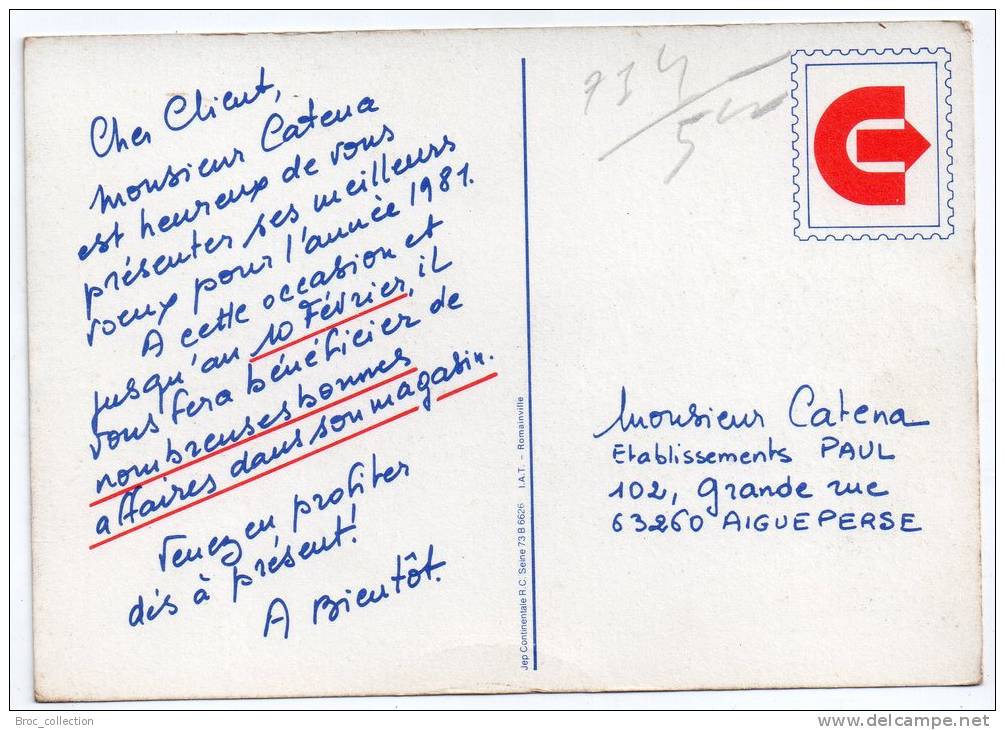 Cher Client,
Monsieur Catena
est heureux de vous
présenter ses meilleurs
voeux pour l'année 1981.
A cette occasion et
jusqu'au 10 Février, il
vous fera bénéficier de
nombreuses bonnes
affaires dans son magasin.
Venez en profiter
dès à présent!
A Bientôt.
Jep Continentale R.C. Seine 73 B 6626 I.A.T. - Romainville
Monsieur Catena
Etablissements PAUL
102, Grande rue
63260 AIGUEPERSE
Broc_collection
delcampe.net